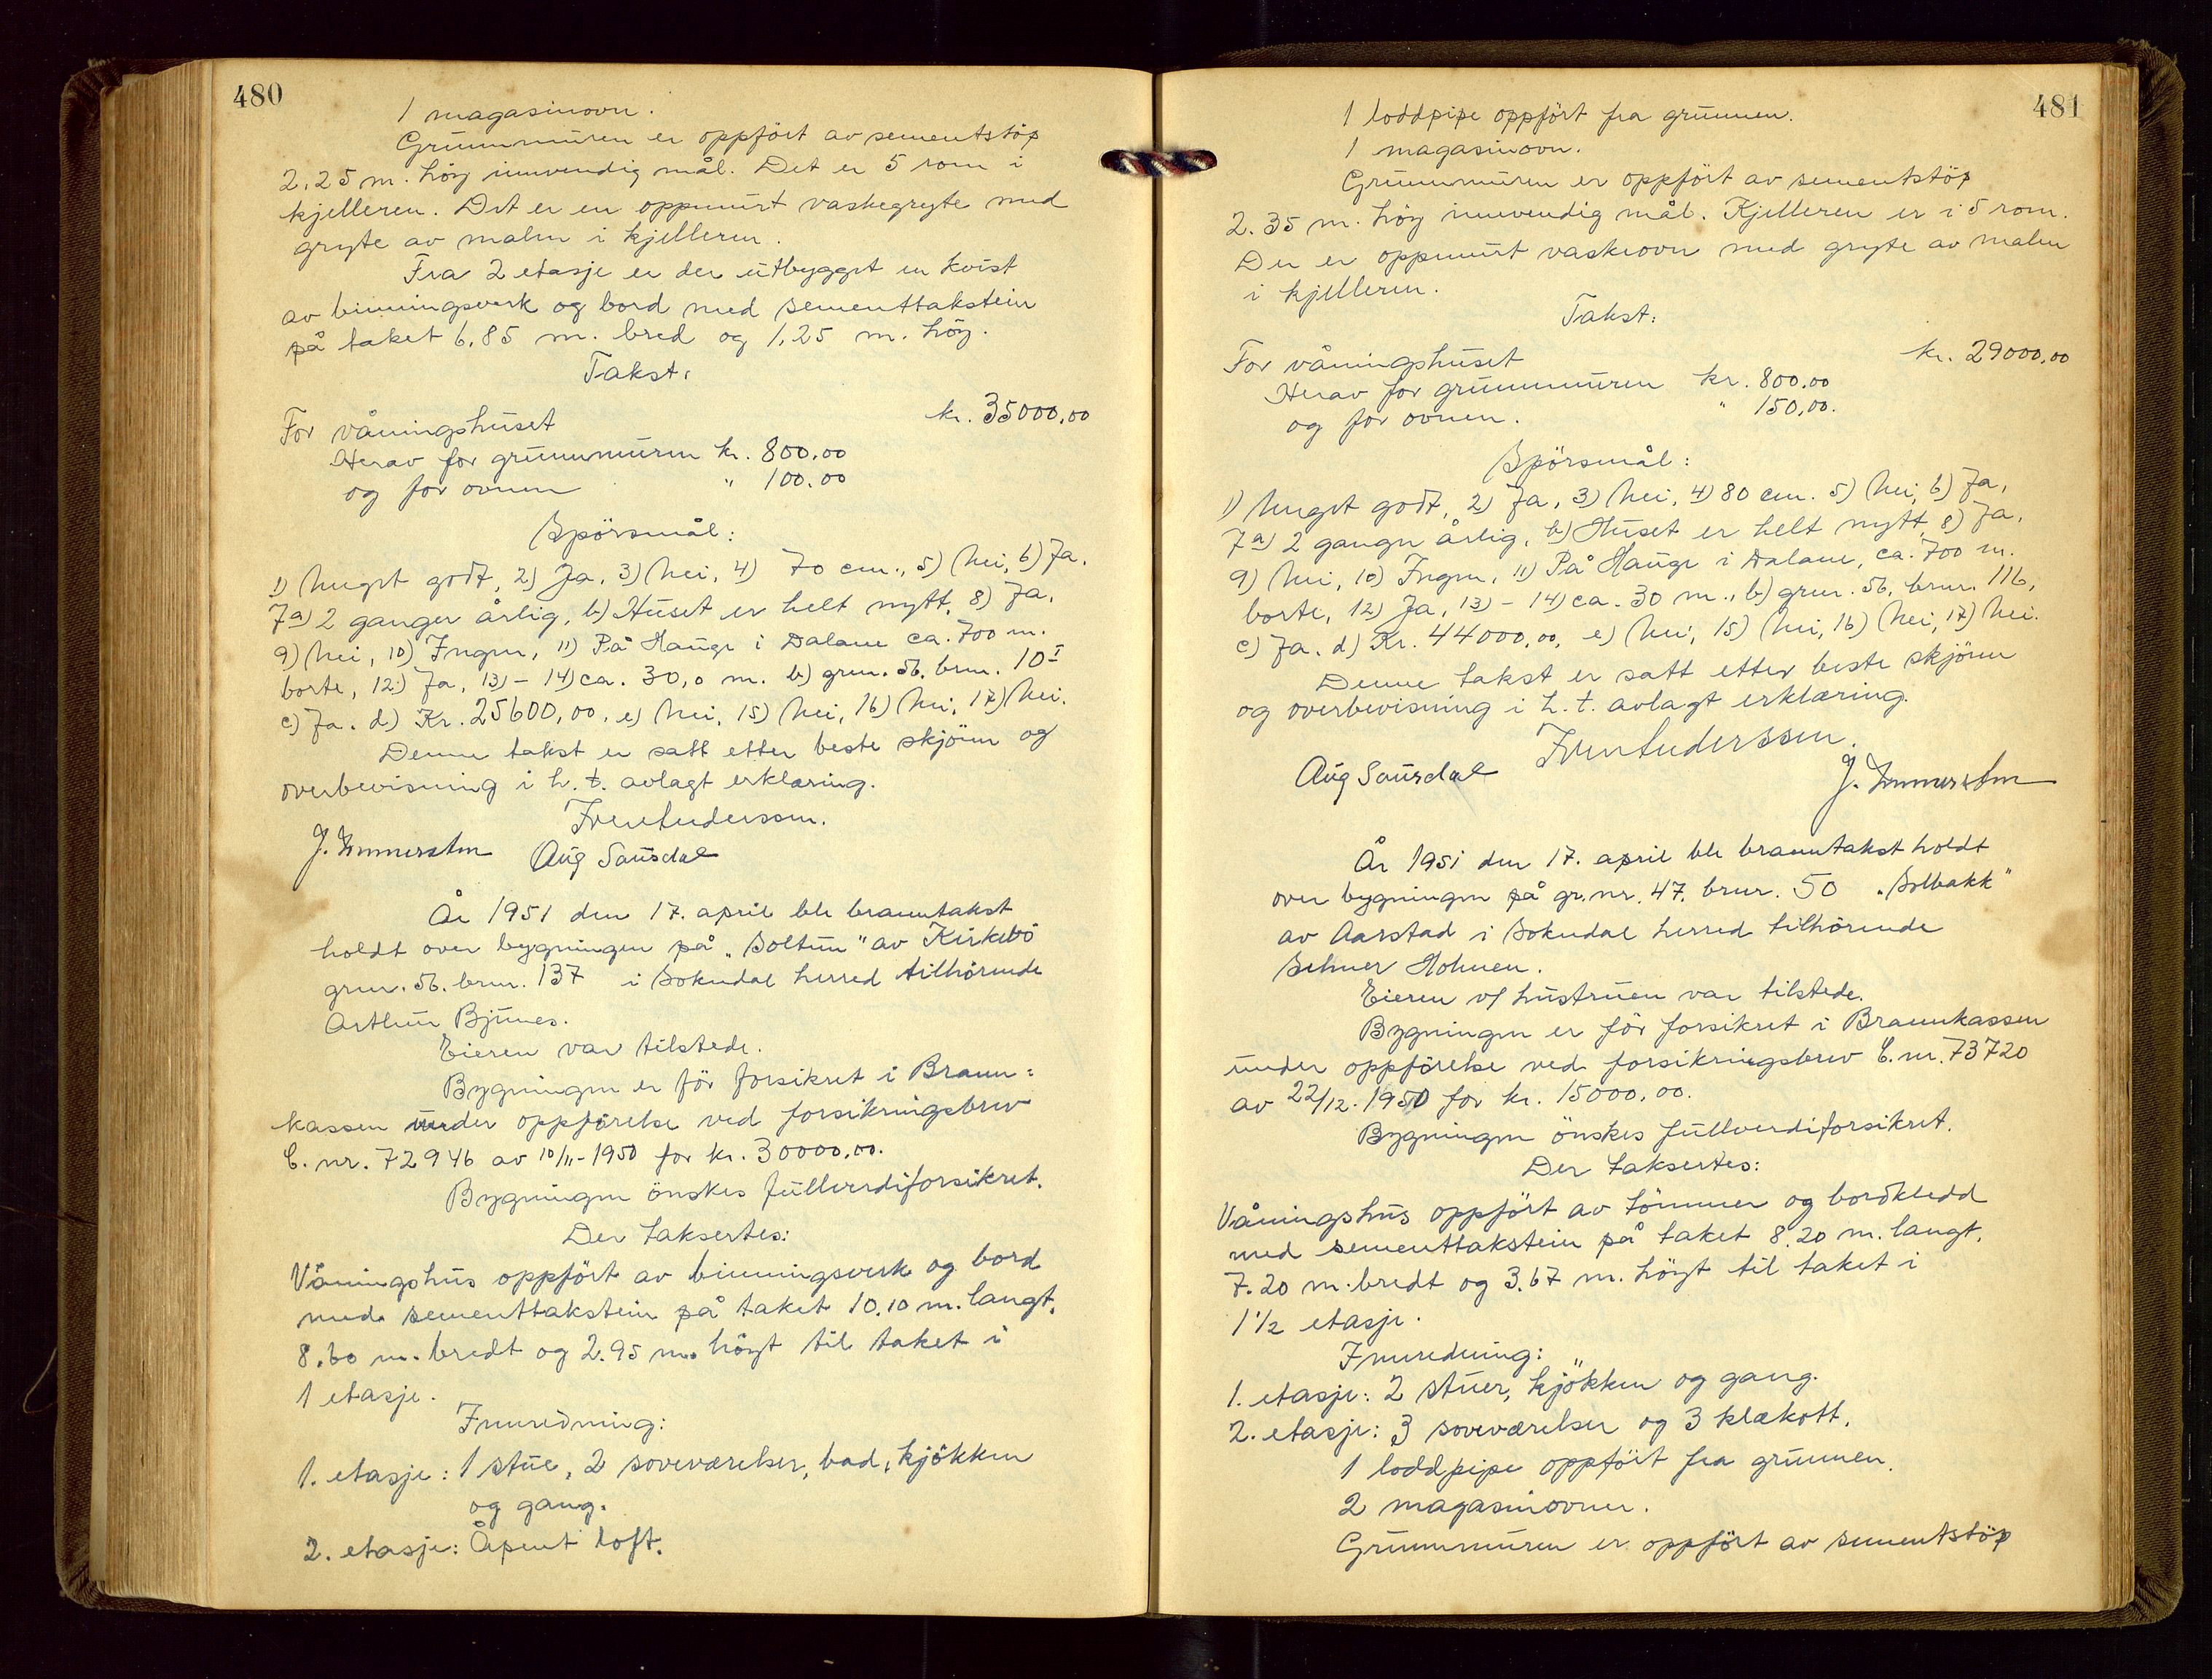 480
1 magasinovn.
Grunnmuren er oppfört av sementstöp
2.25 m. höy innvendig mål. Det er 5 rom i
kjelleren. Det er en oppmurt vaskegryte med
gryte av malm i kjelleren.
Fra 2 etasje er der utbygget en kvist
av binningsverk og bord med sementtakstein
på taket 6,85 m. bred og 1,25 m. höy.
Takst:
For våningshuset kr. 35000,00
Herav for grunnmuren kr. 800,00
og for ovnen " 100,00
Spörsmål:
1) Meget godt, 2) Ja, 3) Nei, 4) 70 cm., 5) Nei, 6) Ja,
7a) 2 ganger årlig, b) Huset er helt nytt, 8) Ja,
9) Nei, 10) Ingen, 11) På Hauge i Dalane ca. 700 m.
borte, 12) Ja, 13) - 14) ca. 30,0 m. b) grnr. 56, brnr. 10 I
c) Ja. d) Kr. 25600,00, e) Nei, 15) Nei, 16) Nei, 17) Nei.
Denne takst er satt etter beste skjönn og
overbevisning i h. t. avlagt erklæring.
J. Immerstein Aug Saurdal
År 1951 den 17. april ble branntakst
holdt over bygningen på "Soltun" av Kirkebö
grnr. 56. brnr. 137 i Sokndal herred tilhörende
Arthur Bjunes.
Eieren var tilstede.
Bygningen er för forsikret i Brann=
kassen under oppförelse ved forsikringsbrev
C. nr. 72946 av 10/11-1950 for kr. 30000,00.
Bygningen önskes fullverdiforsikret.
Der taksertes:
Våningshus oppfört av binningsverk og bord
med sementtakstein på taket 10,10 m. langt,
8.60 m. bredt og 2.95 m. höyt til taket i
1 etasje.
Innredning:
1. etasje: 1 stue, 2 soveværelser, bad, kjökken
og gang.
2. etasje: Åpent loft.
481
1 loddpipe oppfört fra grunnen.
1 magasinovn.
Grunnmuren er oppfört av sementstöp
2.35 m. höy innvendig mål. Kjelleren er i 5 rom.
Der er oppmurt vaskeovn med gryte av malm
i kjelleren.
Takst:
For våningshuset kr. 29000,00
Herav for grunnmuren kr. 800,00
og for ovnen. " 150,00.
Spörsmål:
1) Meget godt, 2) Ja, 3) Nei, 4) 80 cm. 5) Nei, 6) Ja,
7a) 2 ganger årlig, b) Huset er helt nytt, 8) Ja,
9) Nei, 10) Ingen, 11) På Hauge i Dalane, ca. 700 m.
borte, 12) Ja, 13) - 14) ca. 30 m., b) grnr. 56, brnr. 116,
c) Ja. d) Kr. 44000,00, e) Nei, 15) Nei, 16) Nei, 17) Nei.
Denne takst er satt etter beste skjönn
og overbevisning i h. t. avlagt erklæring.
Aug Saurdal J. Immerstein
År 1951 den 17. april ble branntakst holdt
over bygningen på gr.nr. 47. brnr. 50 "Solbakk"
av Aarstad i Sokndal herred tilhörende
Selmer Holmen.
Eieren v/ hustruen var tilstede.
Bygningen er för forsikret i Brannkassen
under oppförelse ved forsikringsbrev C. nr. 73720
av 22/12. 1950 for kr. 15000,00.
Bygningen önskes fullverdiforsikret.
Der taksertes:
Våningshus oppfört av tömmer og bordkledd
med sementtakstein på taket 8.20 m. langt,
7.20 m. bredt og 3.67 m. höyt til taket i
1 1/2 etasje.
Innredning:
1. etasje: 2 stuer, kjökken og gang.
2. etasje: 3 soveværelser og 3 klækott.
1 loddpipe oppfört fra grunnen.
2 magasinovner.
Grunnmuren er oppfört av sementstöp